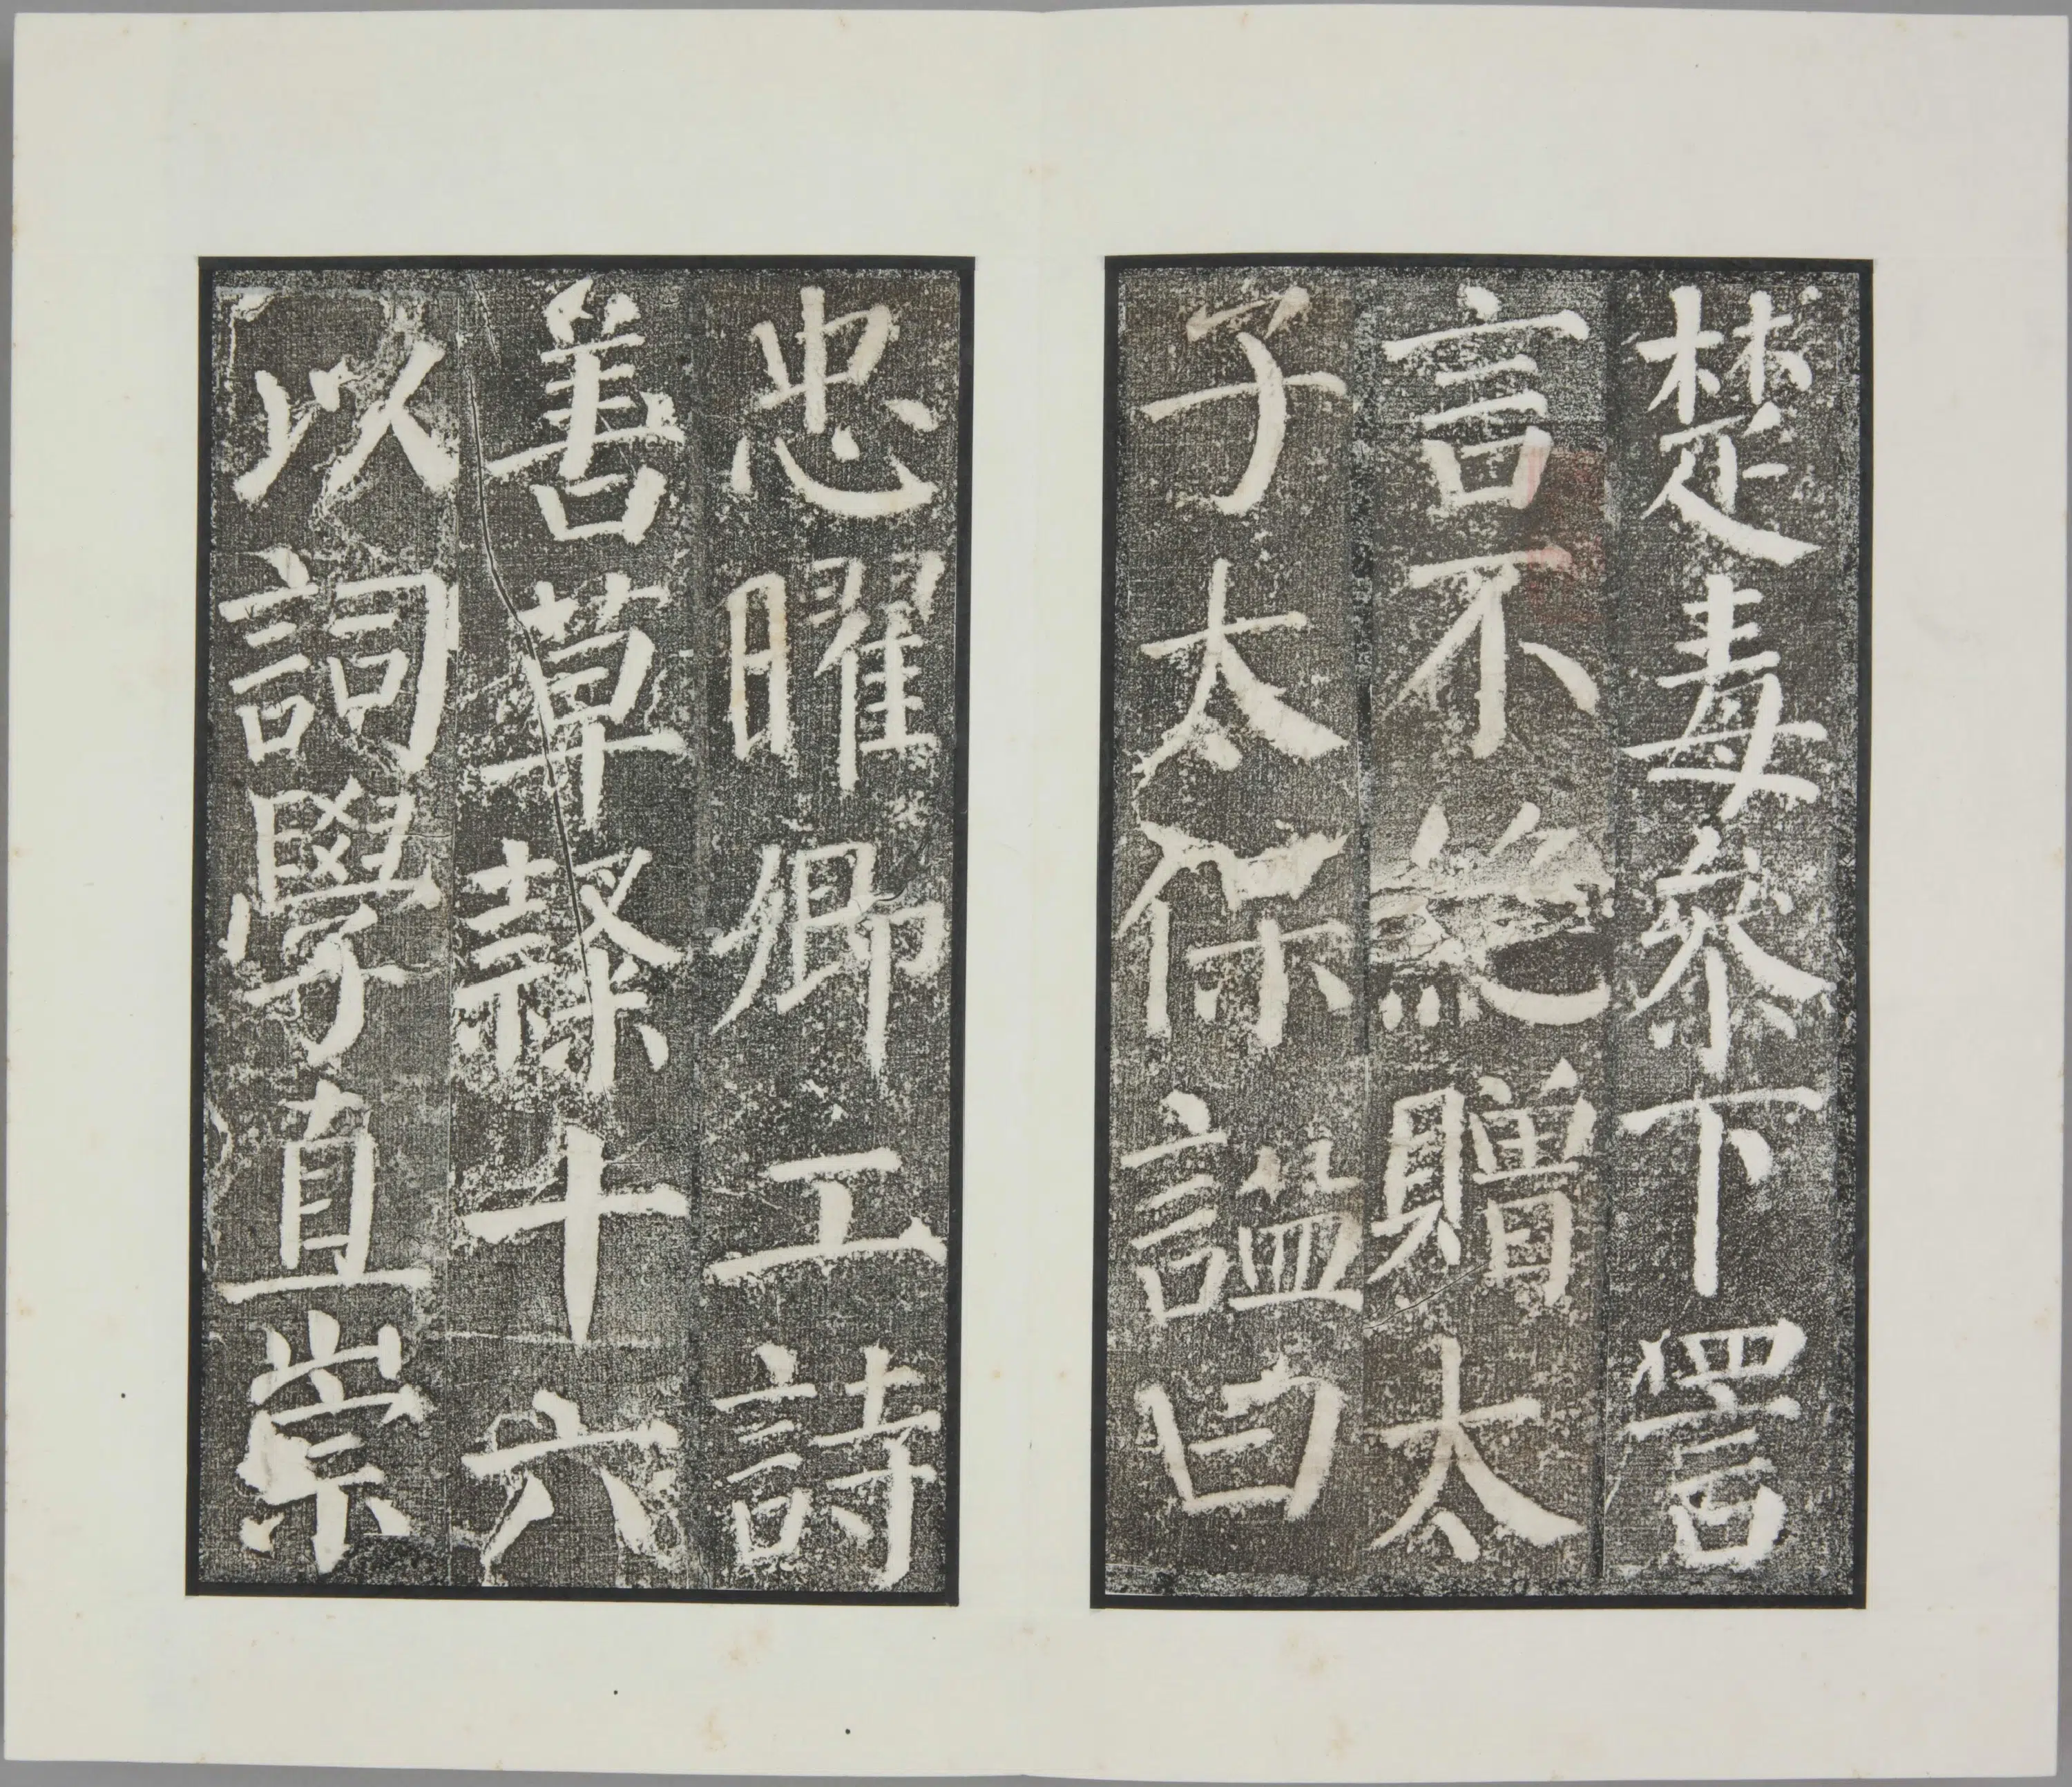 楚毒參下詈
言不絕贈太
子太保謚曰
忠曜卿工詩
善草隸十六
以詞學直崇